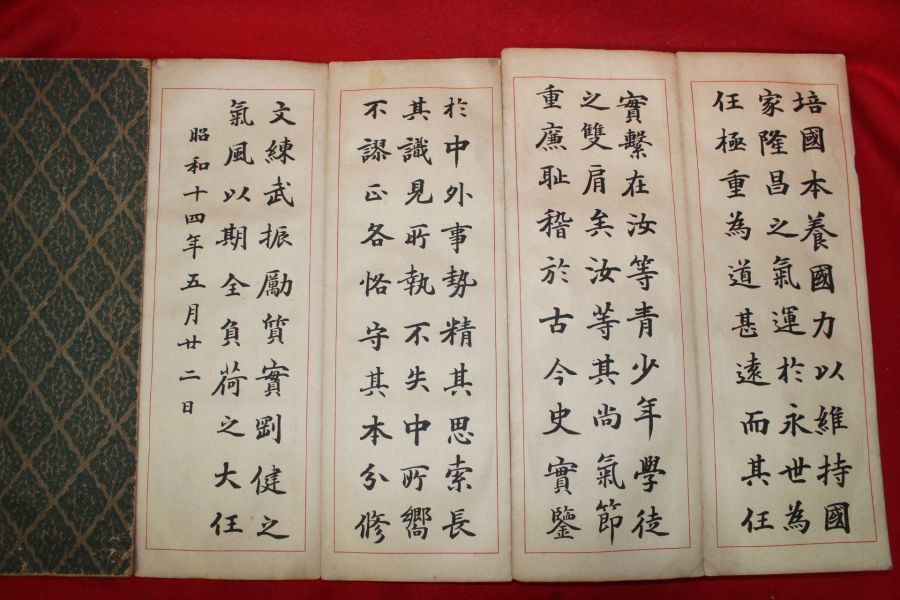 培國本養國力以維持國
家隆昌之氣運於永世為
任極重為道甚遠而其任
實繫在汝等青少年學徒
之雙肩矣汝等其尚氣節
重廉恥稽於古今史實鑒
於中外事勢精其思索長
其識見所執不失中所嚮
不謬正各恪守其本分修
文練武振勵質實剛健之
氣風以期全負荷之大任
昭和十四年五月廿二日